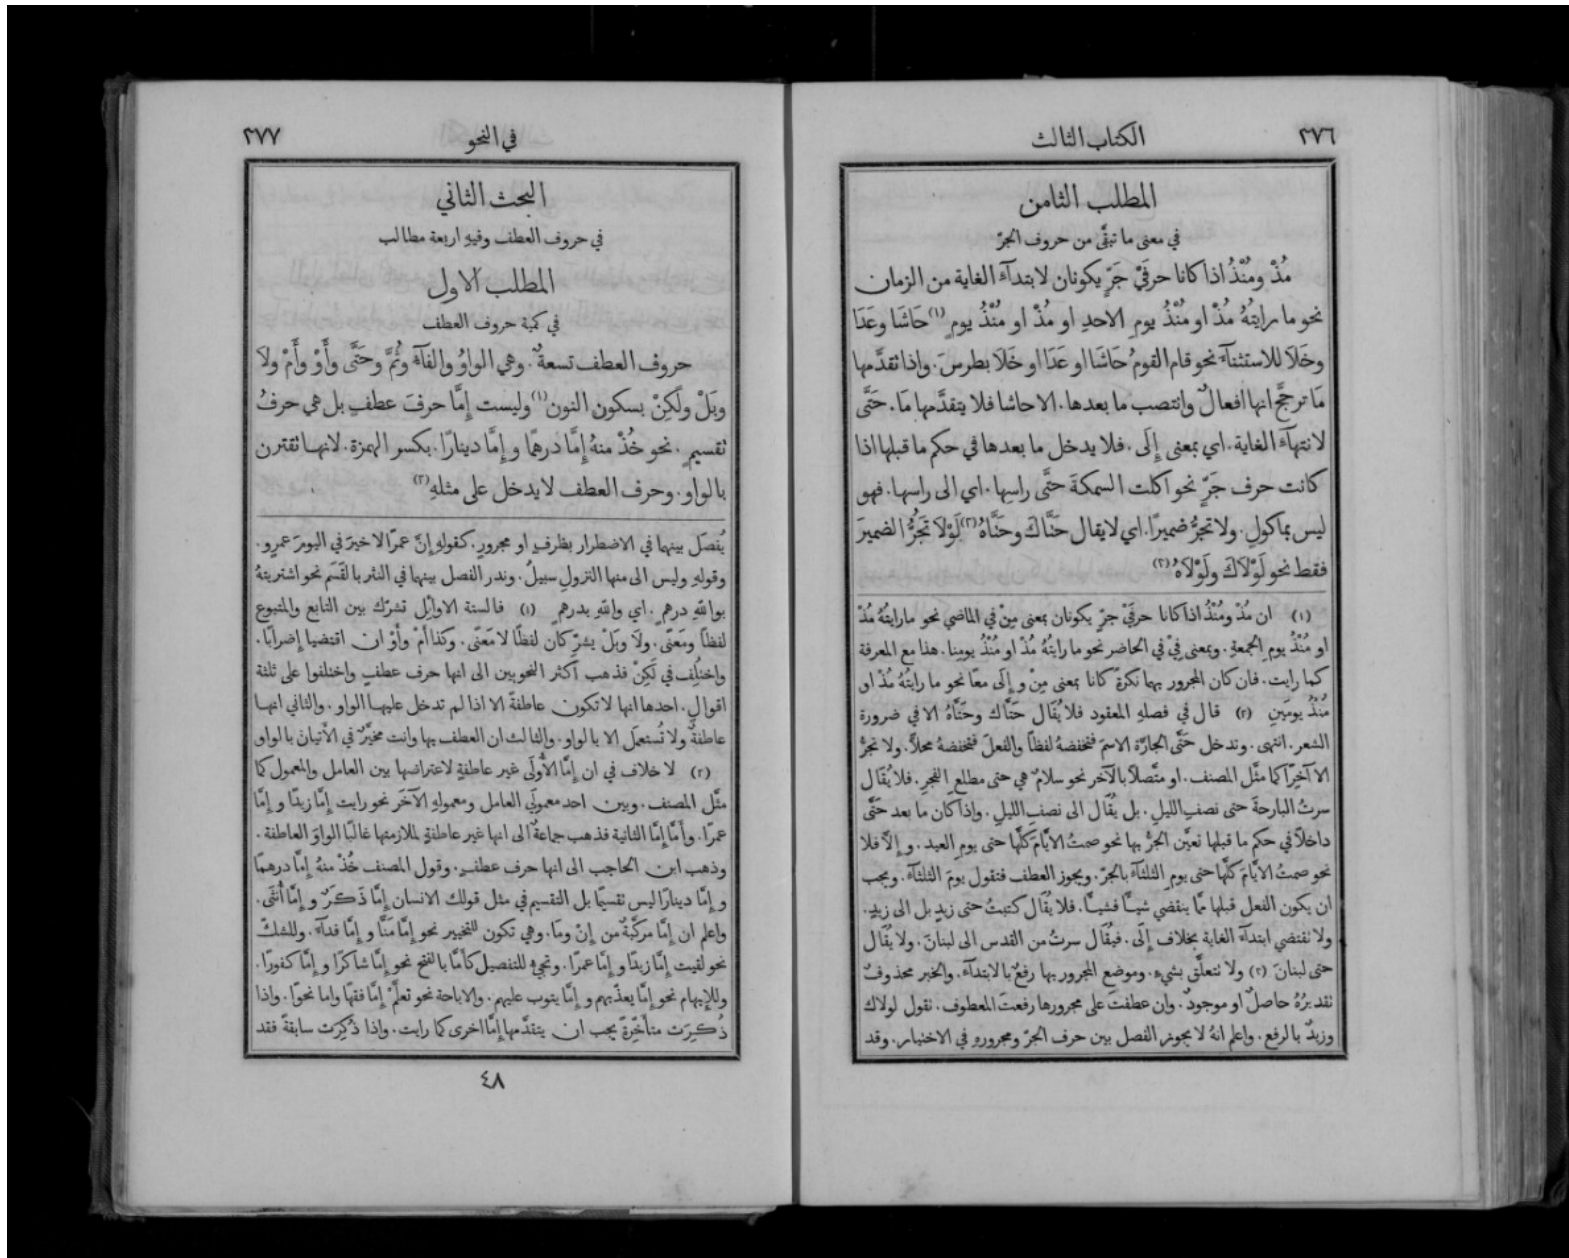 ٢٧٦
الكتاب الثالث
المطلب الثامن
في معنى ما تبقَّى من حروف الجرّ
مُذْ ومُنْذُ اذا كانا حرفَيْ جَرٍّ يكونان لابتدآءِ الغاية من الزمان
نحو ما رايتهُ مُذْ او مُنْذُ يومِ الاحدِ او مُذْ او مُنْذُ يومٍ (١) حَاشَا وعَدَا
وخَلَا للاستثنآءِ نحو قام القومُ حَاشَا او عَدَا او خَلَا بطرسَ. واذا تقدَّمها
مَا ترجَّح انها افعالٌ وانتصب ما بعدها. الا حاشا فلا يتقدَّمها مَا. حَتَّى
لانتهآءِ الغاية. اي بمعنى إِلَى. فلا يدخل ما بعدها في حكم ما قبلها اذا
كانت حرف جَرٍّ نحو اكلت السمكةَ حتَّى راسِها. اي الى راسِها. فهو
ليس بماكولٍ. ولا تجرُّ ضميرًا. اي لا يقال حَتَّاكَ وحَتَّاهُ (٢) لَوْلَا تَجُرُّ الضميرَ
فقط نحو لَوْلَاكَ ولَوْلَاهُ (٣)
(١) ان مُذْ ومُنْذُ اذا كانا حرفَيْ جرٍّ يكونان بمعنى مِنْ في الماضي نحو ما رايتُهُ مُذْ
او مُنْذُ يوم الجمعةِ. وبمعنى فِيْ في الحاضر نحو ما رايتُهُ مُذْ او مُنْذُ يومِنا. هذا مع المعرفة
كما رايت. فان كان المجرور بهما نكرةً كانا بمعنى مِنْ و إِلَى معًا نحو ما رايتُهُ مُذْ او
مُنْذُ يومَينِ (٢) قال في فصلهِ المعقود فلا يُقَال حَتَّاك وحَتَّاهُ الا في ضرورة
الشعر. انتهى. وتدخل حَتَّى الجارَّة الاسمَ فتخفضهُ لفظًا والفعلَ فتخفضهُ محلًّا. ولا تجرُّ
الا آخِرًا كما مثَّل المصنف. او متَّصلًا بالآخر نحو سلامٌ هي حتى مطلعِ الفجرِ. فلا يُقَال
سرتُ البارحةَ حتى نصفِ الليلِ. بل يُقَال الى نصفِ الليلِ. واذا كان ما بعد حَتَّى
داخلًا في حكم ما قبلها تعيَّن الجرُّ بها نحو صمتُ الايَّامَ كلَّها حتى يومِ العيد. و إِلَّا فلا
نحو صمتُ الايَّامَ كلَّها حتى يومِ الثلثآءِ بالجرّ. ويجوز العطف فتقول يومَ الثلثآءِ. ويجب
ان يكون الفعل قبلها ممَّا ينقضي شيــًا فشيــًا. فلا يُقَال كتبتُ حتى زيدٍ بل الى زيدٍ.
ولا تقتضي ابتدآءَ الغاية بخلاف إِلَى. فيُقَال سرتُ من القدس الى لبنان. ولا يُقَال
حتى لبنان (٣) ولا تتعلَّق بشيءٍ. وموضع المجرور بها رفعٌ بالابتدآءِ. والخبر محذوفٌ
تقديرُهُ حاصلٌ او موجودٌ. وان عطفتَ على مجرورها رفعتَ المعطوف. تقول لولاك
وزيدٌ بالرفع. واعلم انهُ لا يجوز الفصل بين حرف الجرّ ومجرورهِ في الاختيار. وقد
في النحو
٢٧٧
البحث الثاني
في حروف العطف وفيهِ اربعة مطالب
المطلب الاول
في كمية حروف العطف
حروف العطف تسعةٌ. وهي الواوُ والفآءُ وثُمَّ وحتَّى وأَوْ وأَمْ ولَا
وبَلْ ولَكِنْ بسكون النون (١) وليست إِمَّا حرفَ عطفٍ بل هي حرفُ
تقسيمٍ. نحو خُذْ منهُ إِمَّا درهمًا و إِمَّا دينارًا. بكسر الهمزة. لانهــا تقترن
بالواو. وحرف العطف لا يدخل على مثلهِ (٢)
يُفصَل بينهما في الاضطرار بظرفٍ او مجرورٍ. كقولهِ إِنَّ عمرًا لا خيرَ في اليومَ عمرٍو.
وقولهِ وليس الى منها النزولِ سبيلُ. وندر الفصل بينهما في النثر بالقَسَم نحو اشتريتهُ
بواللهِ درهمٍ. اي واللهِ بدرهمٍ (١) فالستة الاوائِل تشرّك بين التابع والمتبوع
لفظًا ومَعنًى. ولَا وبَلْ يشرّكان لفظًا لا مَعنًى. وكذا أَمْ وأَوْ ان اقتضيا إِضرابًا.
واختُلِف في لَكِنْ فذهب اكثر النحويين الى انها حرف عطفٍ واختلفوا على ثلثة
اقوالٍ. احدها انها لا تكون عاطفةً الا اذا لم تدخل عليهــا الواو. والثاني انهــا
عاطفةٌ ولا تُستعمَل الا بالواو. والثالث ان العطف بها وانت مخيَّرٌ في الأَتيان بالواو
(٢) لا خلاف في ان إِمَّا الأُولَى غير عاطفةٍ لاعتراضها بين العامل والمعمول كما
مثَّل المصنف. وبين احد معمولَي العامل ومعمولهِ الآخَر نحو رايت إِمَّا زيدًا و إِمَّا
عمرًا. وأَمَّا إِمَّا الثانية فذهب جماعةٌ الى انها غير عاطفةٍ لملازمتها غالبًا الواوَ العاطفة.
وذهب ابن الحاجب الى انها حرف عطفٍ. وقول المصنف خُذْ منهُ إِمَّا درهمًا
و إِمَّا دينارًا ليس تقسيمًا بل التقسيم في مثل قولك الانسان إِمَّا ذَكَرٌ و إِمَّا أُنثَى.
واعلم ان إِمَّا مركَّبةٌ من إِنْ ومَا. وهي تكون للتخيير نحو إِمَّا مَنًّا و إِمَّا فدآءً. وللشكّ
نحو لقيت إِمَّا زيدًا و إِمَّا عمرًا. وتجيءُ للتفصيل كأَمَّا بالفتح نحو إِمَّا شاكرًا و إِمَّا كفورًا.
وللإِبهام نحو إِمَّا يعذّبهم و إِمَّا يتوب عليهم. والاباحة نحو تعلَّمْ إِمَّا فقهًا واما نحوًا. واذا
ذُكِرَت متأخّرةً يجب ان يتقدَّمها إِمَّا اخرى كما رايت. واذا ذُكِرَت سابقةً فقد
٤٨